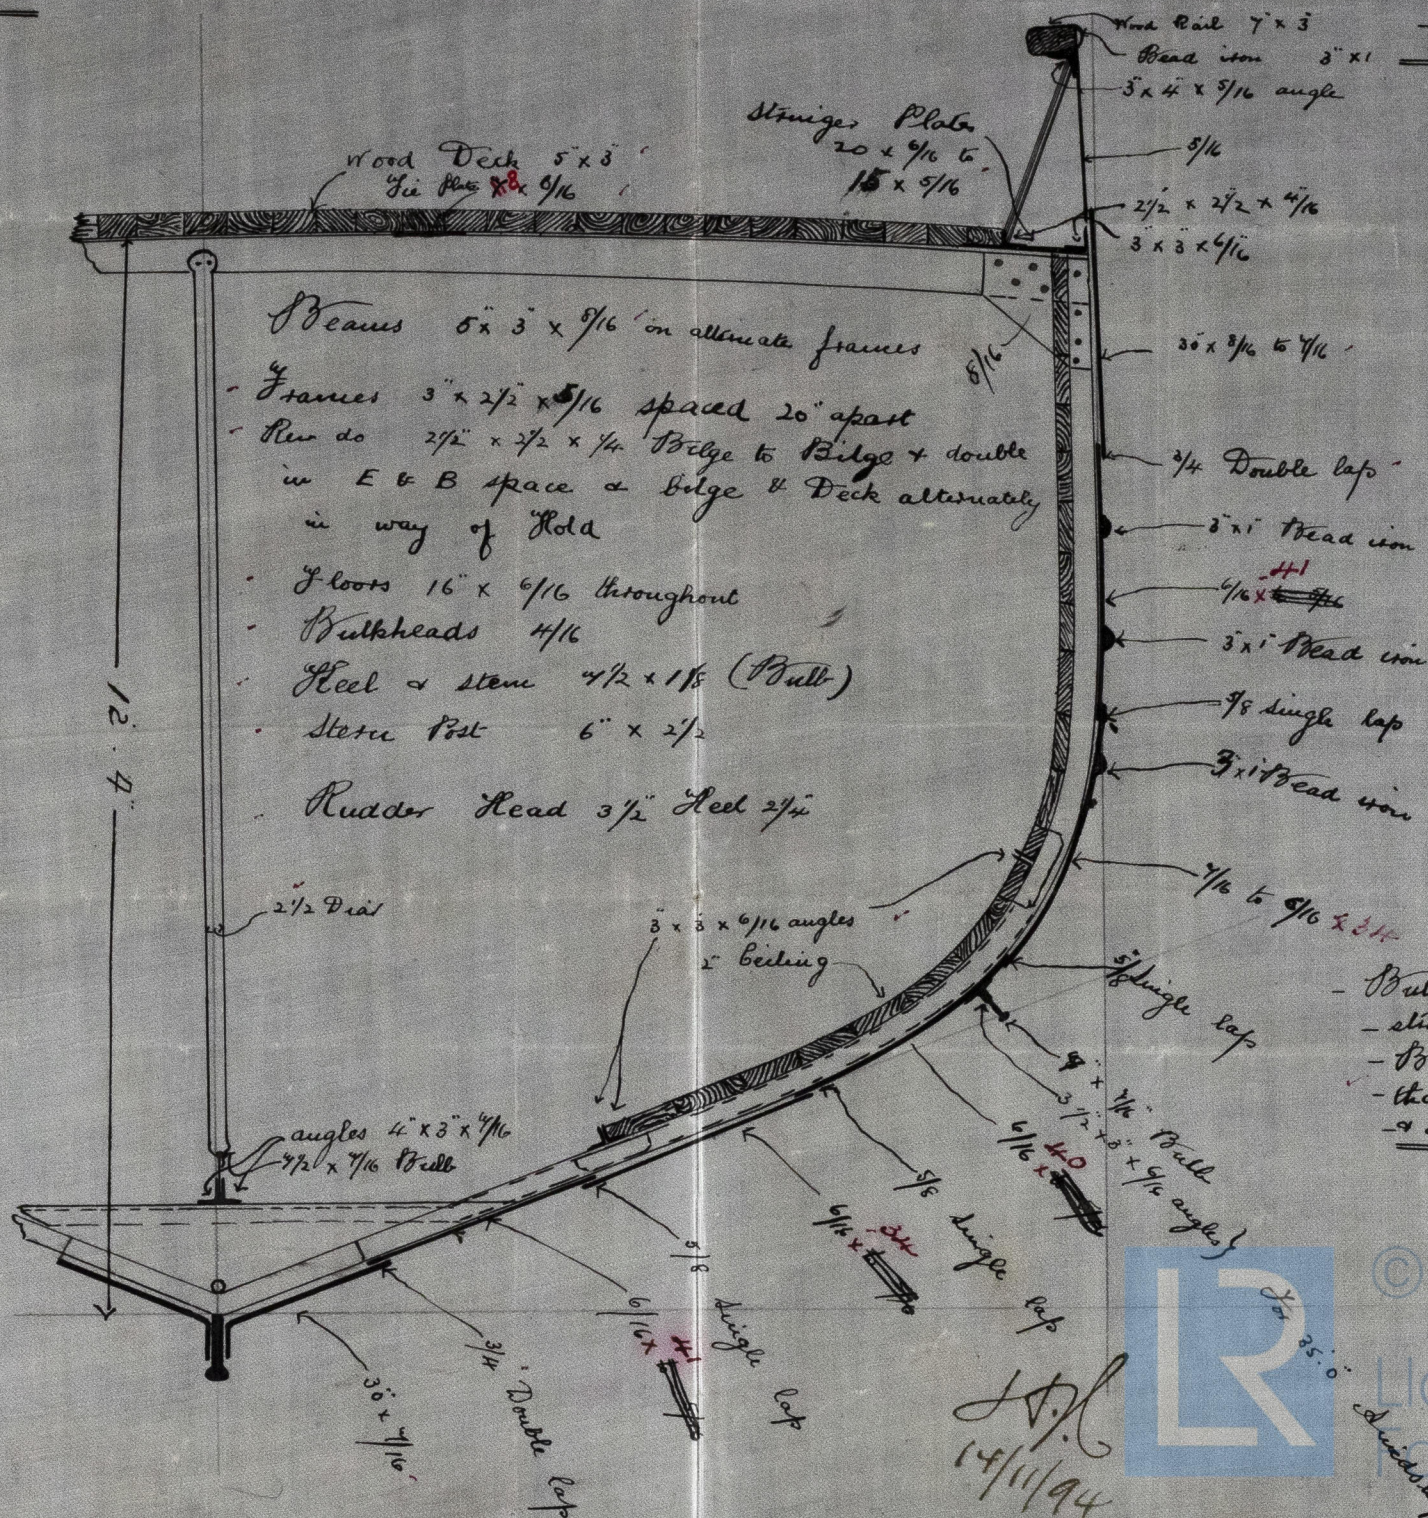 Wood Rail 7" x 3"
Bead iron 3" x 1
3" x 4" x 5/16 angle
5/16
2 1/2 x 2 1/2 x 4/16
3" x 3" x 6/16
Stringer Plates
20 x 6/16 to
15 x 5/16
Wood Deck 5" x 3"
Tie Plate 8 x 6/16
Beams 5" x 3" x 5/16 on alternate frames
Frames 3" x 2 1/2" x 5/16 spaced 20" apart
Rev do 2 1/2" x 2 1/2 x 1/4 Bilge to Bilge & double
in E & B space & bilge & Deck alternately
in way of Hold
Floors 16" x 6/16 throughout
Bulkheads 4/16
Keel & stem 4 1/2 x 1 1/8 (Bulb)
Stern Post 6" x 2 1/2
Rudder Head 3 1/2" Heel 2 1/4"
12.4"
5/16
30" x 8/16 to 7/16
3/4 Double lap
3" x 1" Bead iron
6/16 x 41
3" x 1" Bead iron
5/8 single lap
3" x 1" Bead iron
7/16 to 6/16 x 34
5/8" single lap
2 1/2 Diar
3" x 3" x 6/16 angles
2" Ceiling
angles 4" x 3" x 7/16
7 1/2 x 7/16 Bulb
7/16" Bulb
3 1/2" x 3" x 6/16 angles}
For 35'.0"
6/16 x 40
5/8 single lap
6/16 x 34
5/8 single lap
6/16 x 41
3/4" Double lap
30" x 7/16
14/11/94
LR
©